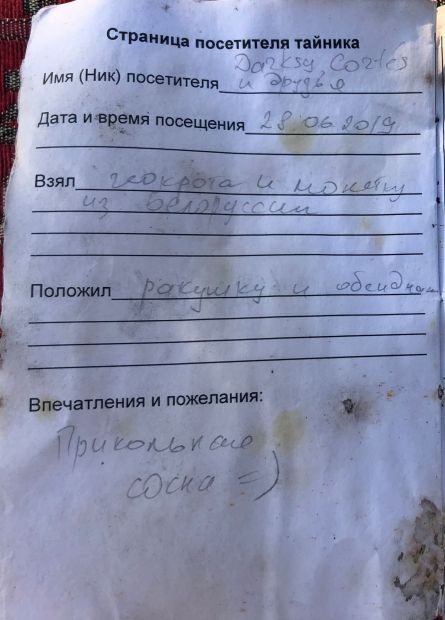 Страница посетителя тайника
Darksy Cortes
Имя (Ник) посетителя и друзья
Дата и время посещения 28.06.2019
Взял геокрота и монетку
из белоруссии
Положил ракушку и обсидиан
Впечатления и пожелания:
Прикольная
сосна =)